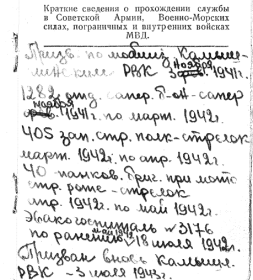 Краткие сведения о прохождении службы
в Советской Армии, Военно-Морских
силах, пограничных и внутренних войсках
МВД.
Призв. по мобилиз. Камыш-
ноября
линским РВК 3 1941г.
1282 отд. сапер. б-он - сапер
ноября
1941г. по март. 1942г.
405 зап. стр. полк - стрелок
март. 1942г. по апр. 1942г.
40 при мото
стр. роте - стрелок
стр. 1942г. по май 1942г.
Эвакогоспиталь № 3176
май 1942
по ранению - 18 июля 1942г.
Призван вновь Камышл.
РВК - 3 июля 1943г.